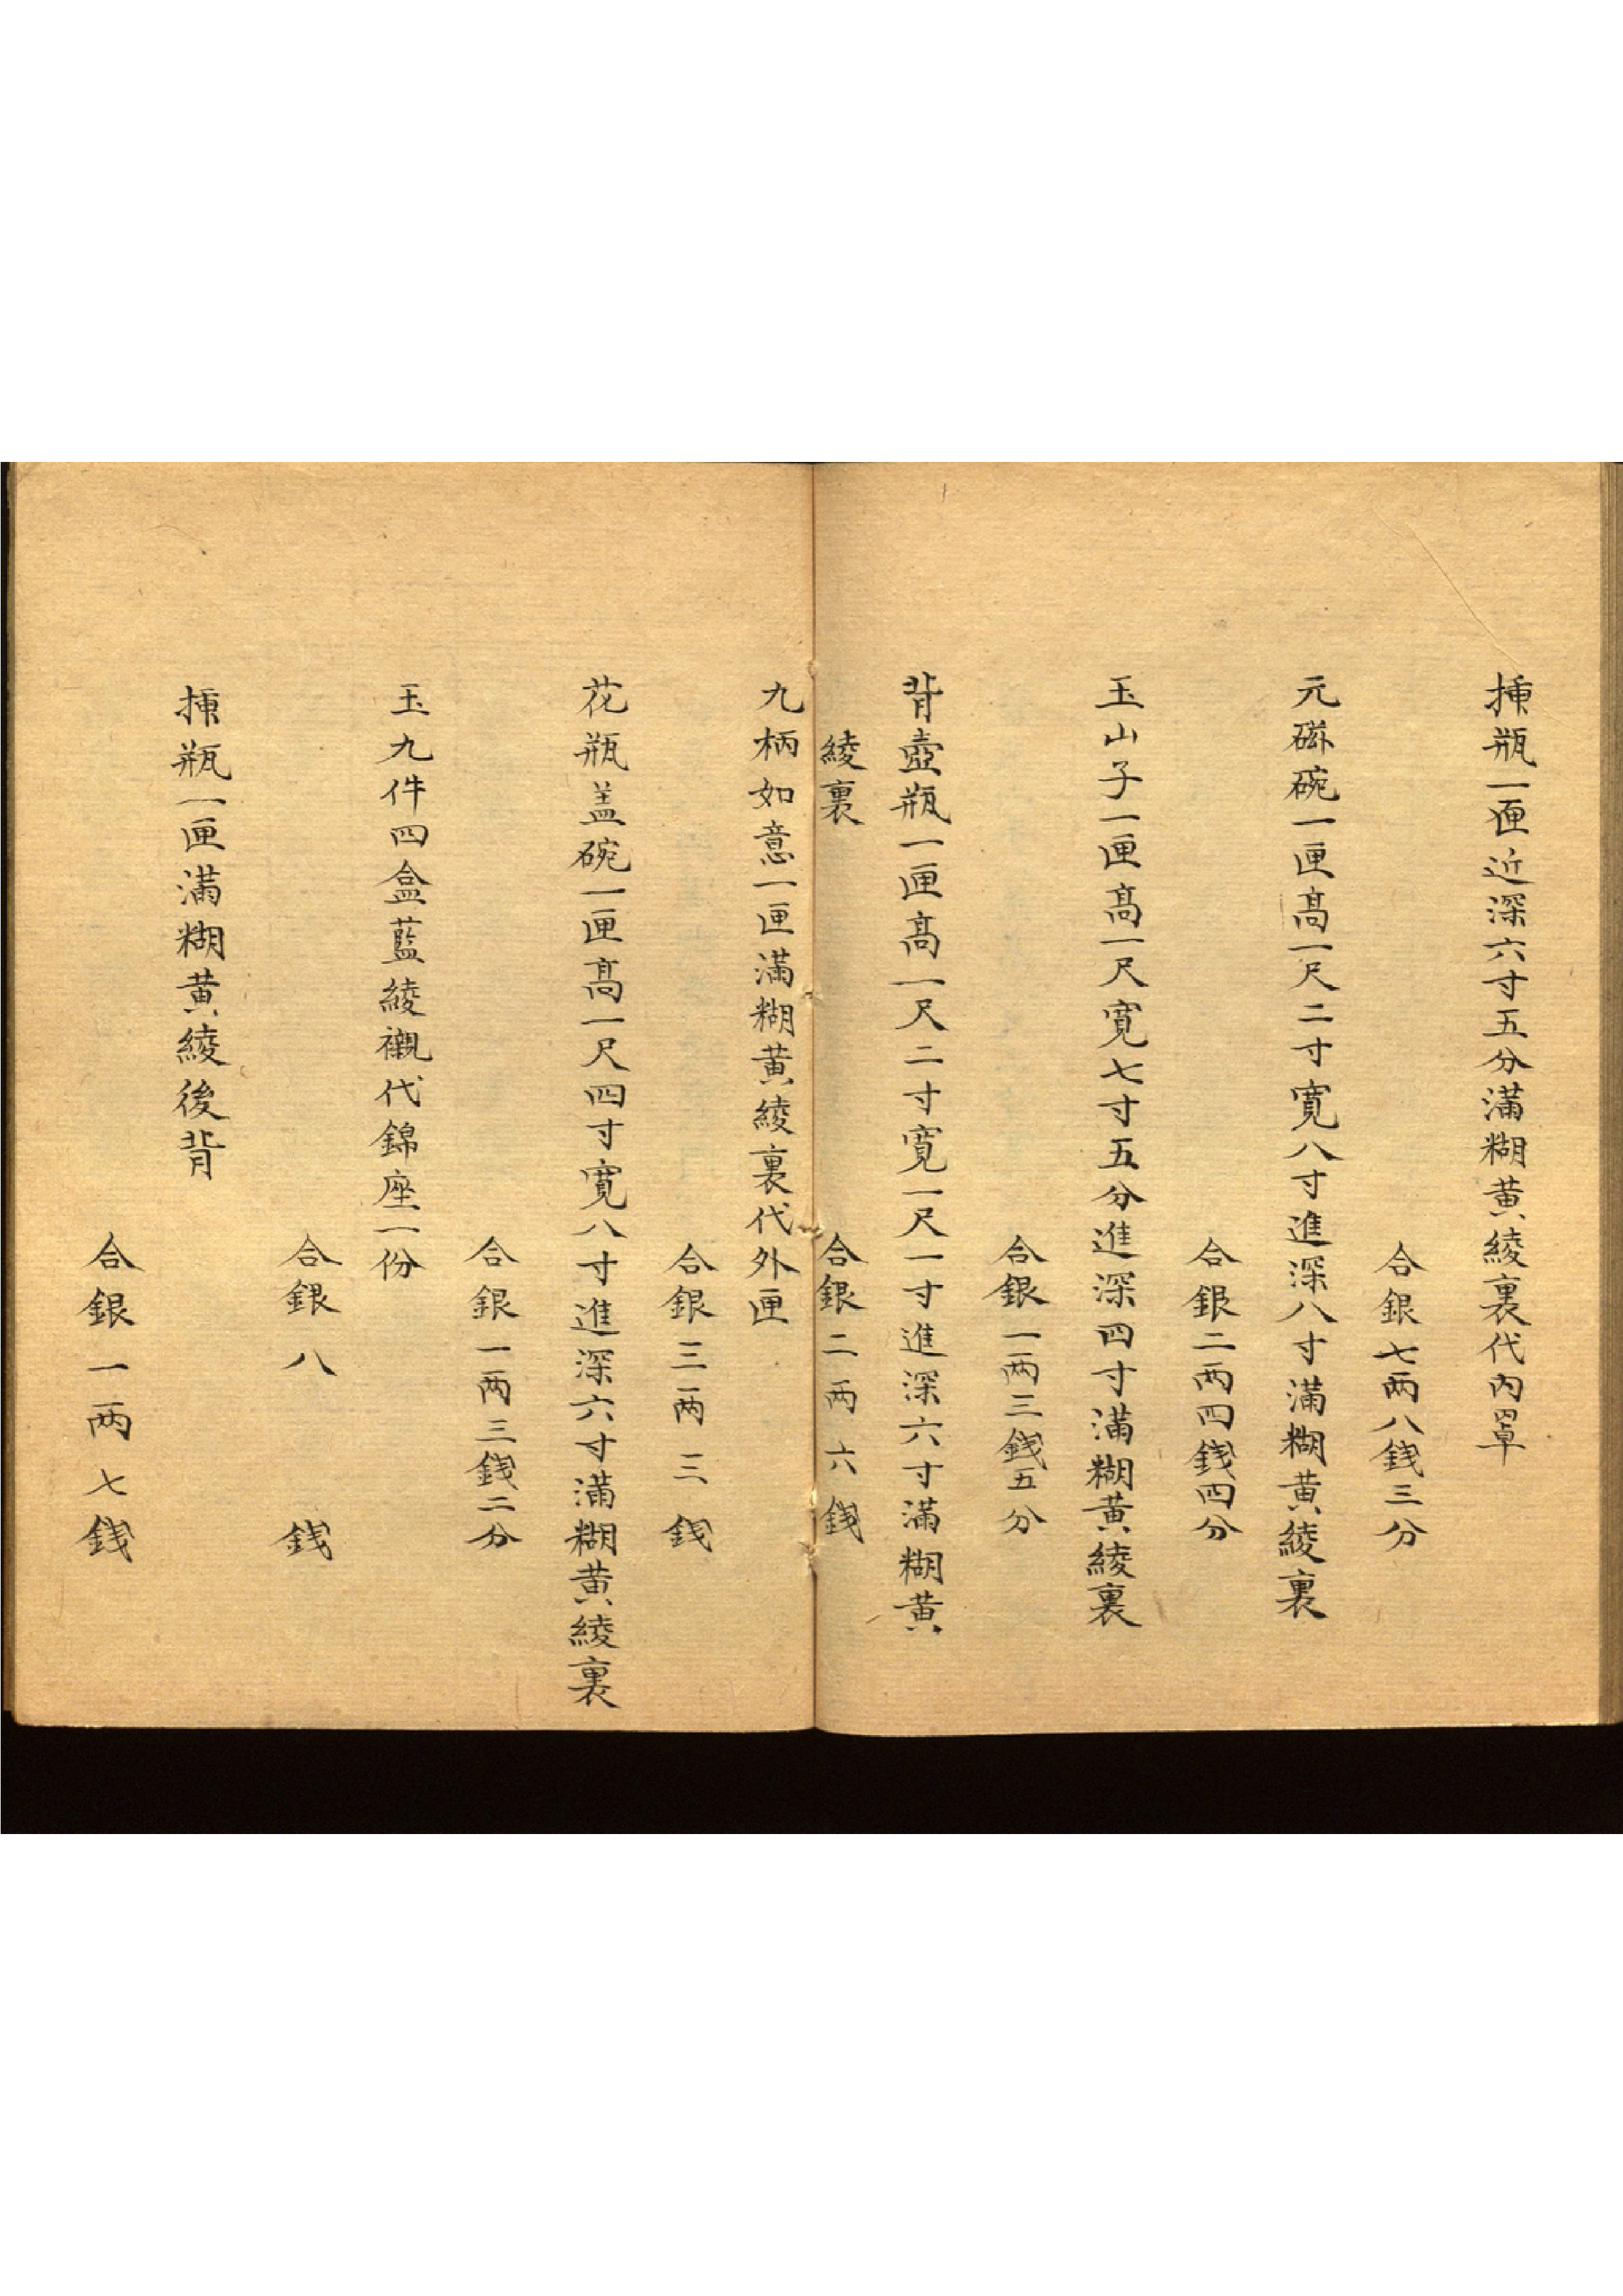 揷瓶一匣近深六寸五分滿糊黃綾裏代內罩
合銀七两八錢三分
元磁碗一匣髙一尺二寸寬八寸進深八寸滿糊黃綾裏
合銀二两四錢四分
玉山子一匣髙一尺寬七寸五分進深四寸滿糊黃綾裏
合銀一两三錢五分
背壺瓶一匣髙一尺二寸寬一尺一寸進深六寸滿糊黃
綾裏 合銀二两六錢
九柄如意一匣滿糊黃綾裏代外匣
合銀三两三錢
花瓶盖碗一匣髙一尺四寸寬八寸進深六寸滿糊黃綾裏
合銀一两三錢二分
玉九件四盒藍綾襯代錦座一份
合銀八錢
揷瓶一匣滿糊黃綾後背
合銀一两七錢